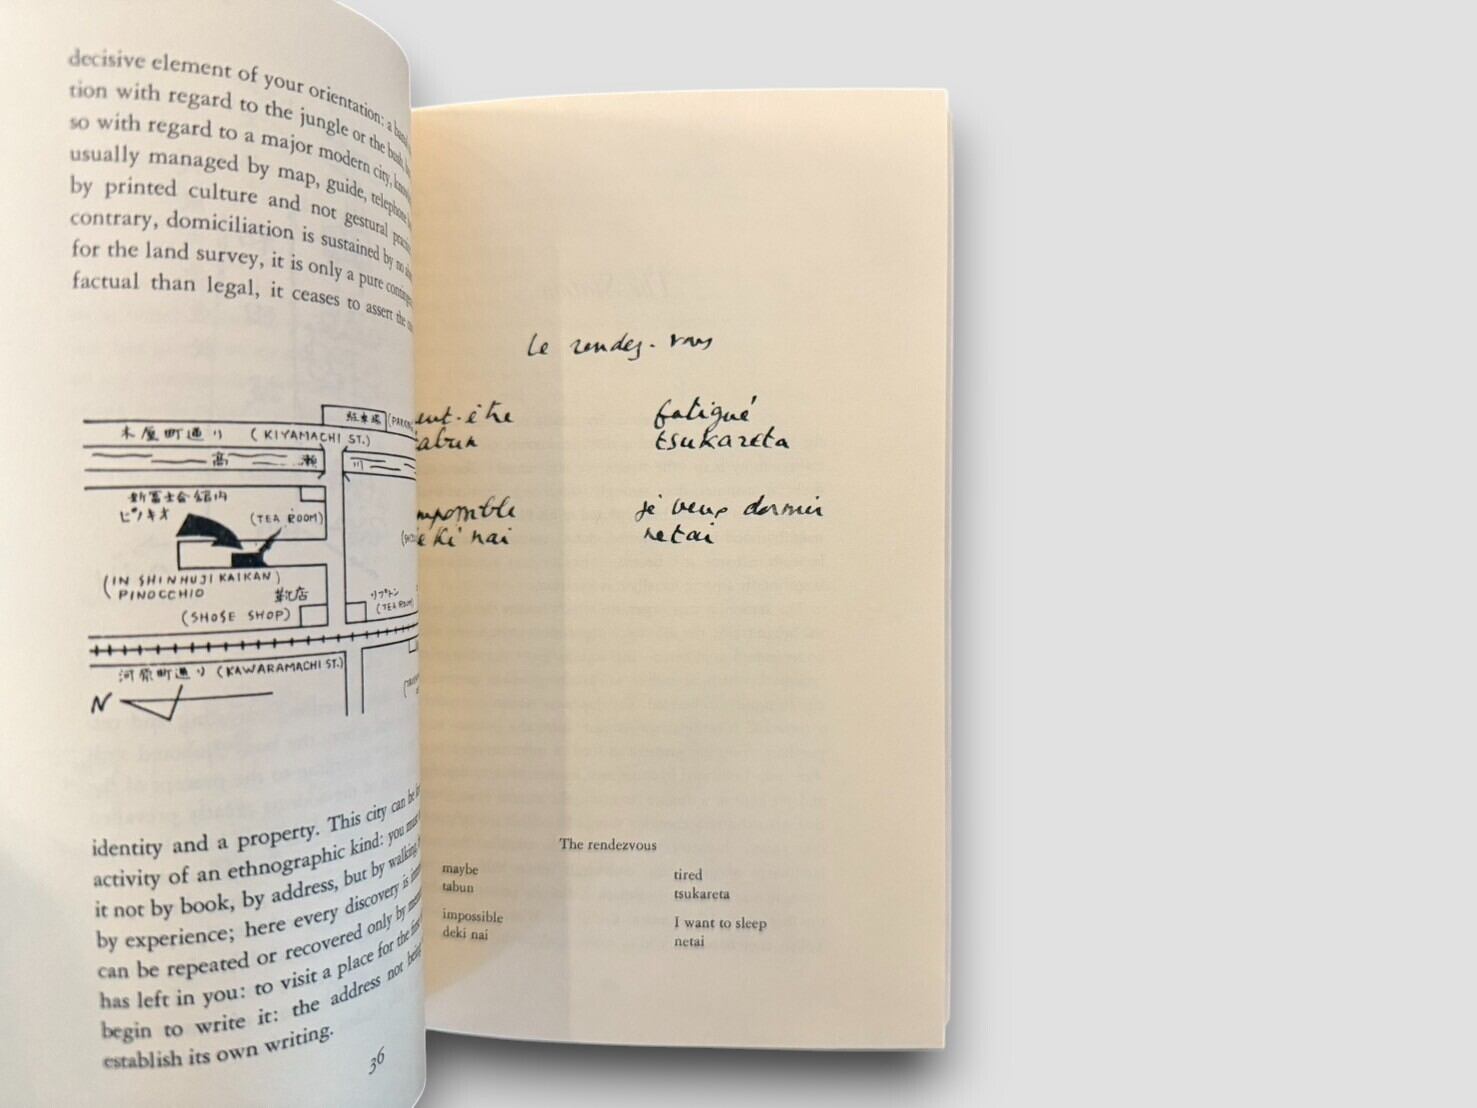 decisive element of your orientation: a
tion with regard to the jungle or the bush,
so with regard to a major modern city,
usually managed by map, guide, telephone
by printed culture and not gestural
contrary, domiciliation is sustained by no
for the land survey, it is only a pure
factual than legal, it ceases to assert the
駐車場
木屋町通り (KIYAMACHI ST.)
高瀬川
新富士会館内
ピノキオ
(TEA ROOM)
(IN SHINHUJI KAIKAN)
PINOCCHIO
靴店
(SHOSE SHOP)
リプトン
(TEA ROOM)
河原町通り (KAWARAMACHI ST.)
N
identity and a property. This city can be
activity of an ethnographic kind: you must
it not by book, by address, but by walking,
by experience; here every discovery is
can be repeated or recovered only by
has left in you: to visit a place for the first
begin to write it: the address not being
establish its own writing.
36
le rendez-vous
fatigué
tsukareta
je veux dormir
netai
The rendezvous
maybe
tabun
tired
tsukareta
impossible
deki nai
I want to sleep
netai